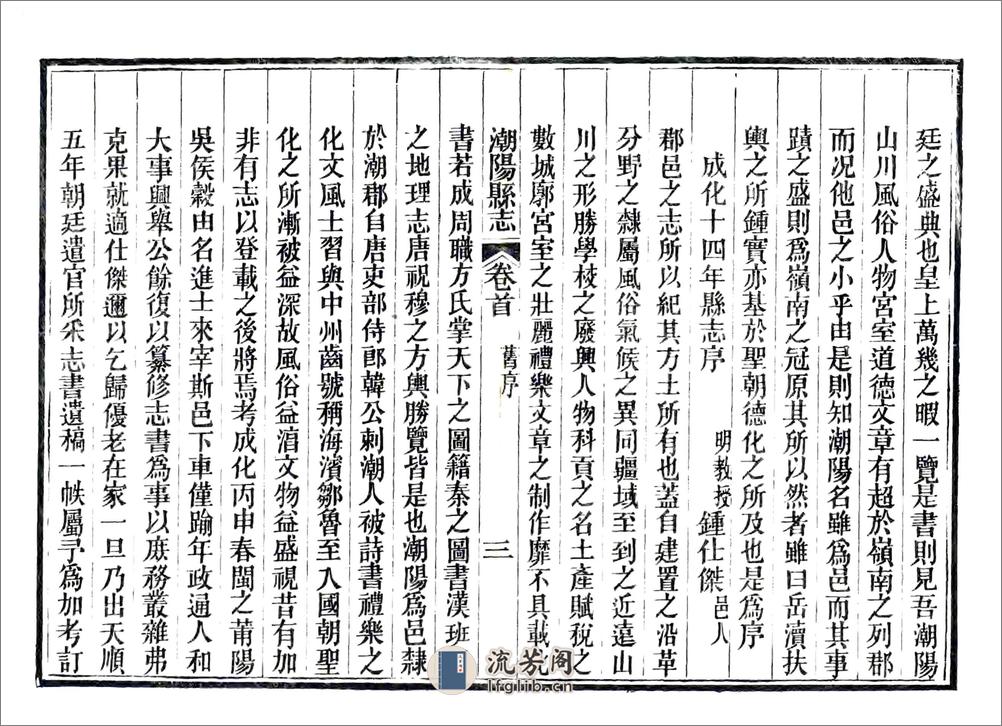 廷之盛典也皇上萬幾之暇一覽是書則見吾潮陽
山川風俗人物宮室道德文章有超於嶺南之列郡
而况他邑之小乎由是則知潮陽名雖爲邑而其事
蹟之盛則爲嶺南之冠原其所以然者雖曰岳瀆扶
輿之所鍾實亦基於聖朝德化之所及也是爲序
成化十四年縣志序 明教授鍾仕傑邑人
郡邑之志所以紀其方土所有也蓋自建置之沿革
分野之隸屬風俗氣候之異同疆域至到之近遠山
川之形勝學校之廢興人物科貢之名土產賦稅之
數城廓宮室之壯麗禮樂文章之制作靡不具載
潮陽縣志 卷首 舊序 三
書若成周職方氏掌天下之圖籍秦之圖書漢班
之地理志唐祝穆之方輿勝覽皆是也潮陽爲邑隸
於潮郡自唐吏部侍郎韓公刺潮人被詩書禮樂之
化文風士習與中州齒號稱海濱鄒魯至入國朝聖
化之所漸被益深故風俗益淳文物益盛視昔有加
非有志以登載之後將焉考成化丙申春閩之莆陽
吳侯榖由名進士來宰斯邑下車僅踰年政通人和
大事興舉公餘復以纂修志書爲事以庶務叢雜弗
克果就適仕傑邇以乞歸優老在家一旦乃出天順
五年朝廷遣官所采志書遺稿一帙屬予爲加考訂
流芳阁
lfglib.cn